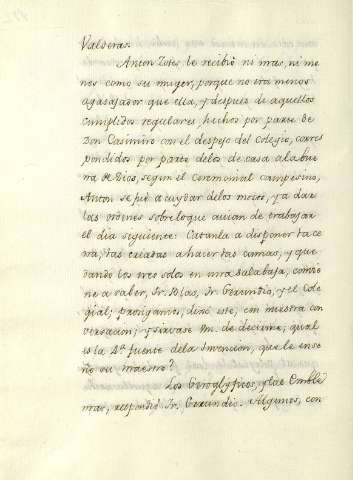 Valderas.
Anton Zotes le recibiò ni mas, ni me
nos como su muger, porque no era menos
agasajador que ella, y despues de aquellos
cumplidos regulares hechos por parte de
Don Casimiro con el despejo del Colegio, corres
pondidos por parte delos de casa ala bue
na de Dios, segun el Ceremonial campesino,
Anton se fuè a cuydar delos mozos, y a dar
las ordenes sobre loque avian de trabajar
el dia siguiente: Catanla a disponer la ce
na, las criadas a hacer las camas, y que
dando los tres solos en una sala baja, convie
ne a saber, Fr. Blas, Fr. Gerundio, y el Cole
gial; prosigamos, dixo este, en nuestra con
versacion; y sirvase Vm. de decirme, qual
es la 4ª fuente dela Invencion, que le ense
ño su maestro?
Los Geroglyficos, y las Emble
mas, respondiò Fr. Gerundio. Algunos, con